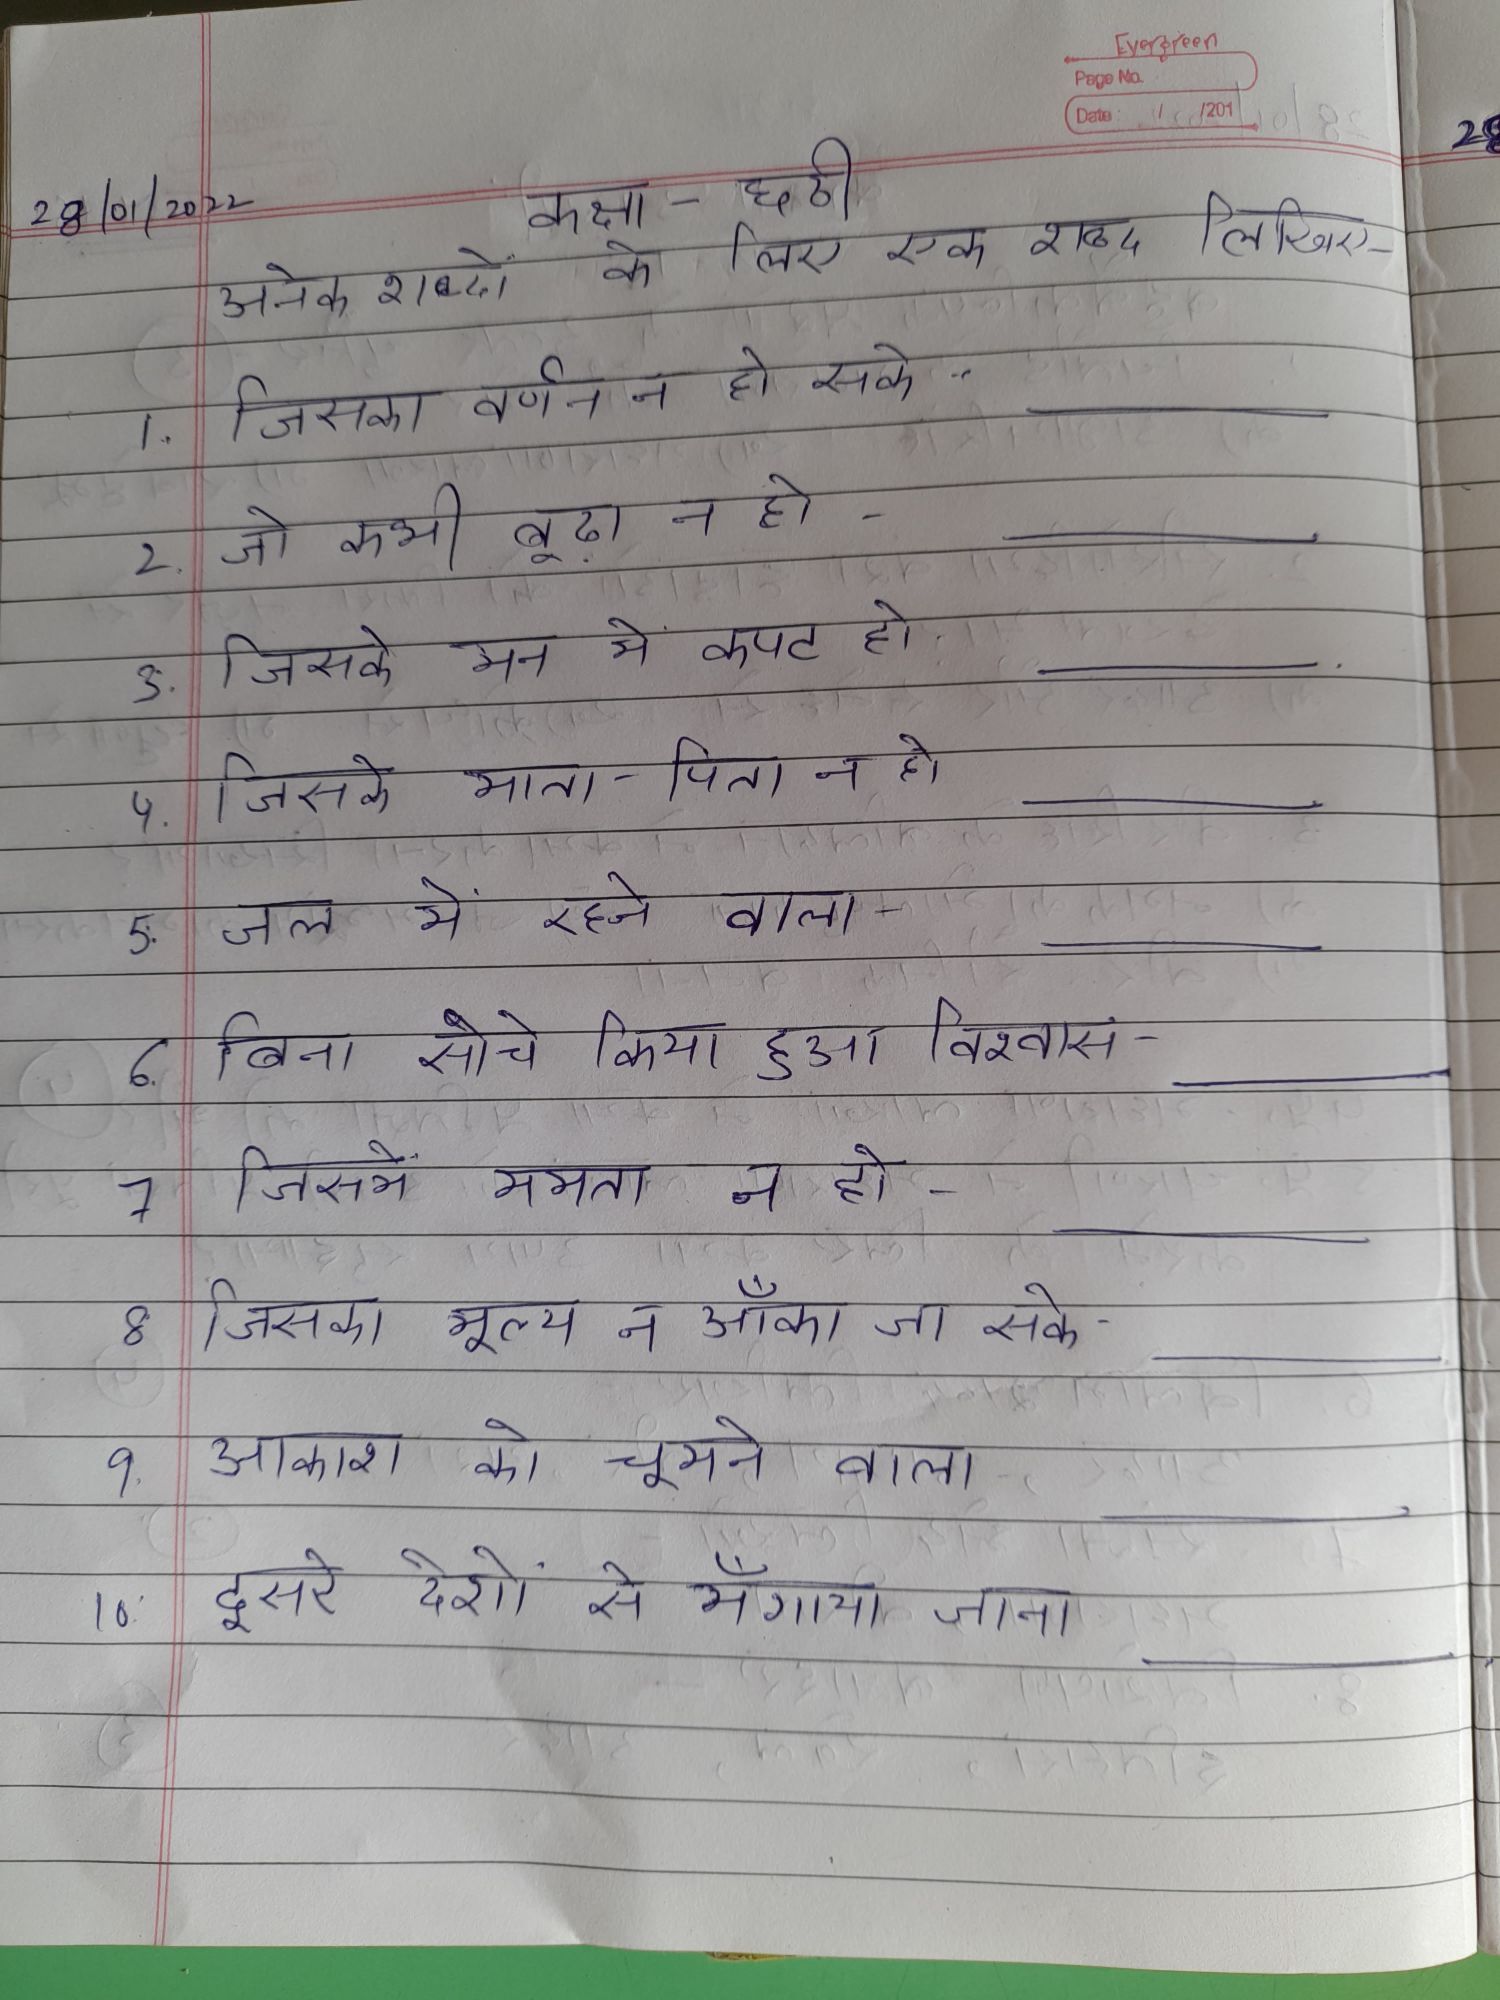 Evergreen
Page No.
Date: / /201
28/01/2022
कक्षा - छठी
अनेक शब्दों के लिए एक शब्द लिखिए-
1. जिसका वर्णन न हो सके -
2. जो कभी बूढ़ा न हो -
3. जिसके मन में कपट हो
4. जिसके माता-पिता न हो
5. जल में रहने वाला -
6. बिना सोचे किया हुआ विश्वास -
7 जिसमें ममता न हो -
8 जिसका मूल्य न आँका जा सके -
9. आकाश को चूमने वाला
10. दूसरे देशों से मँगाया जाना